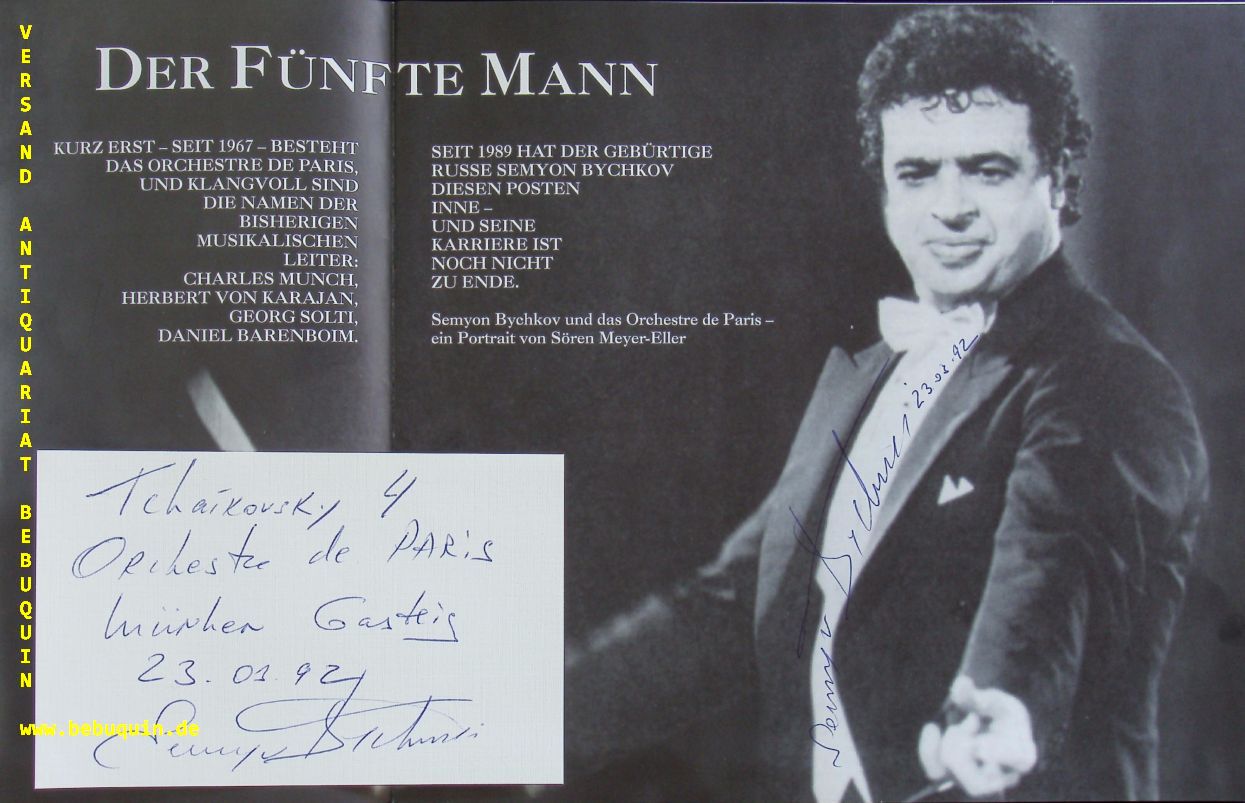 VERSAND ANTIQUARIAT BEBUQUIN
DER FÜNFTE MANN
KURZ ERST – SEIT 1967 – BESTEHT
DAS ORCHESTRE DE PARIS,
UND KLANGVOLL SIND
DIE NAMEN DER
BISHERIGEN
MUSIKALISCHEN
LEITER:
CHARLES MUNCH,
HERBERT VON KARAJAN,
GEORG SOLTI,
DANIEL BARENBOIM.
SEIT 1989 HAT DER GEBÜRTIGE
RUSSE SEMYON BYCHKOV
DIESEN POSTEN
INNE –
UND SEINE
KARRIERE IST
NOCH NICHT
ZU ENDE.
Semyon Bychkov und das Orchestre de Paris –
ein Portrait von Sören Meyer-Eller
Semyon Bychkov 23.03.92
Tchaikovsky 4
Orchestre de PARIS
München Gasteig
23.03.92
Semyon Bychkov
www.bebuquin.de